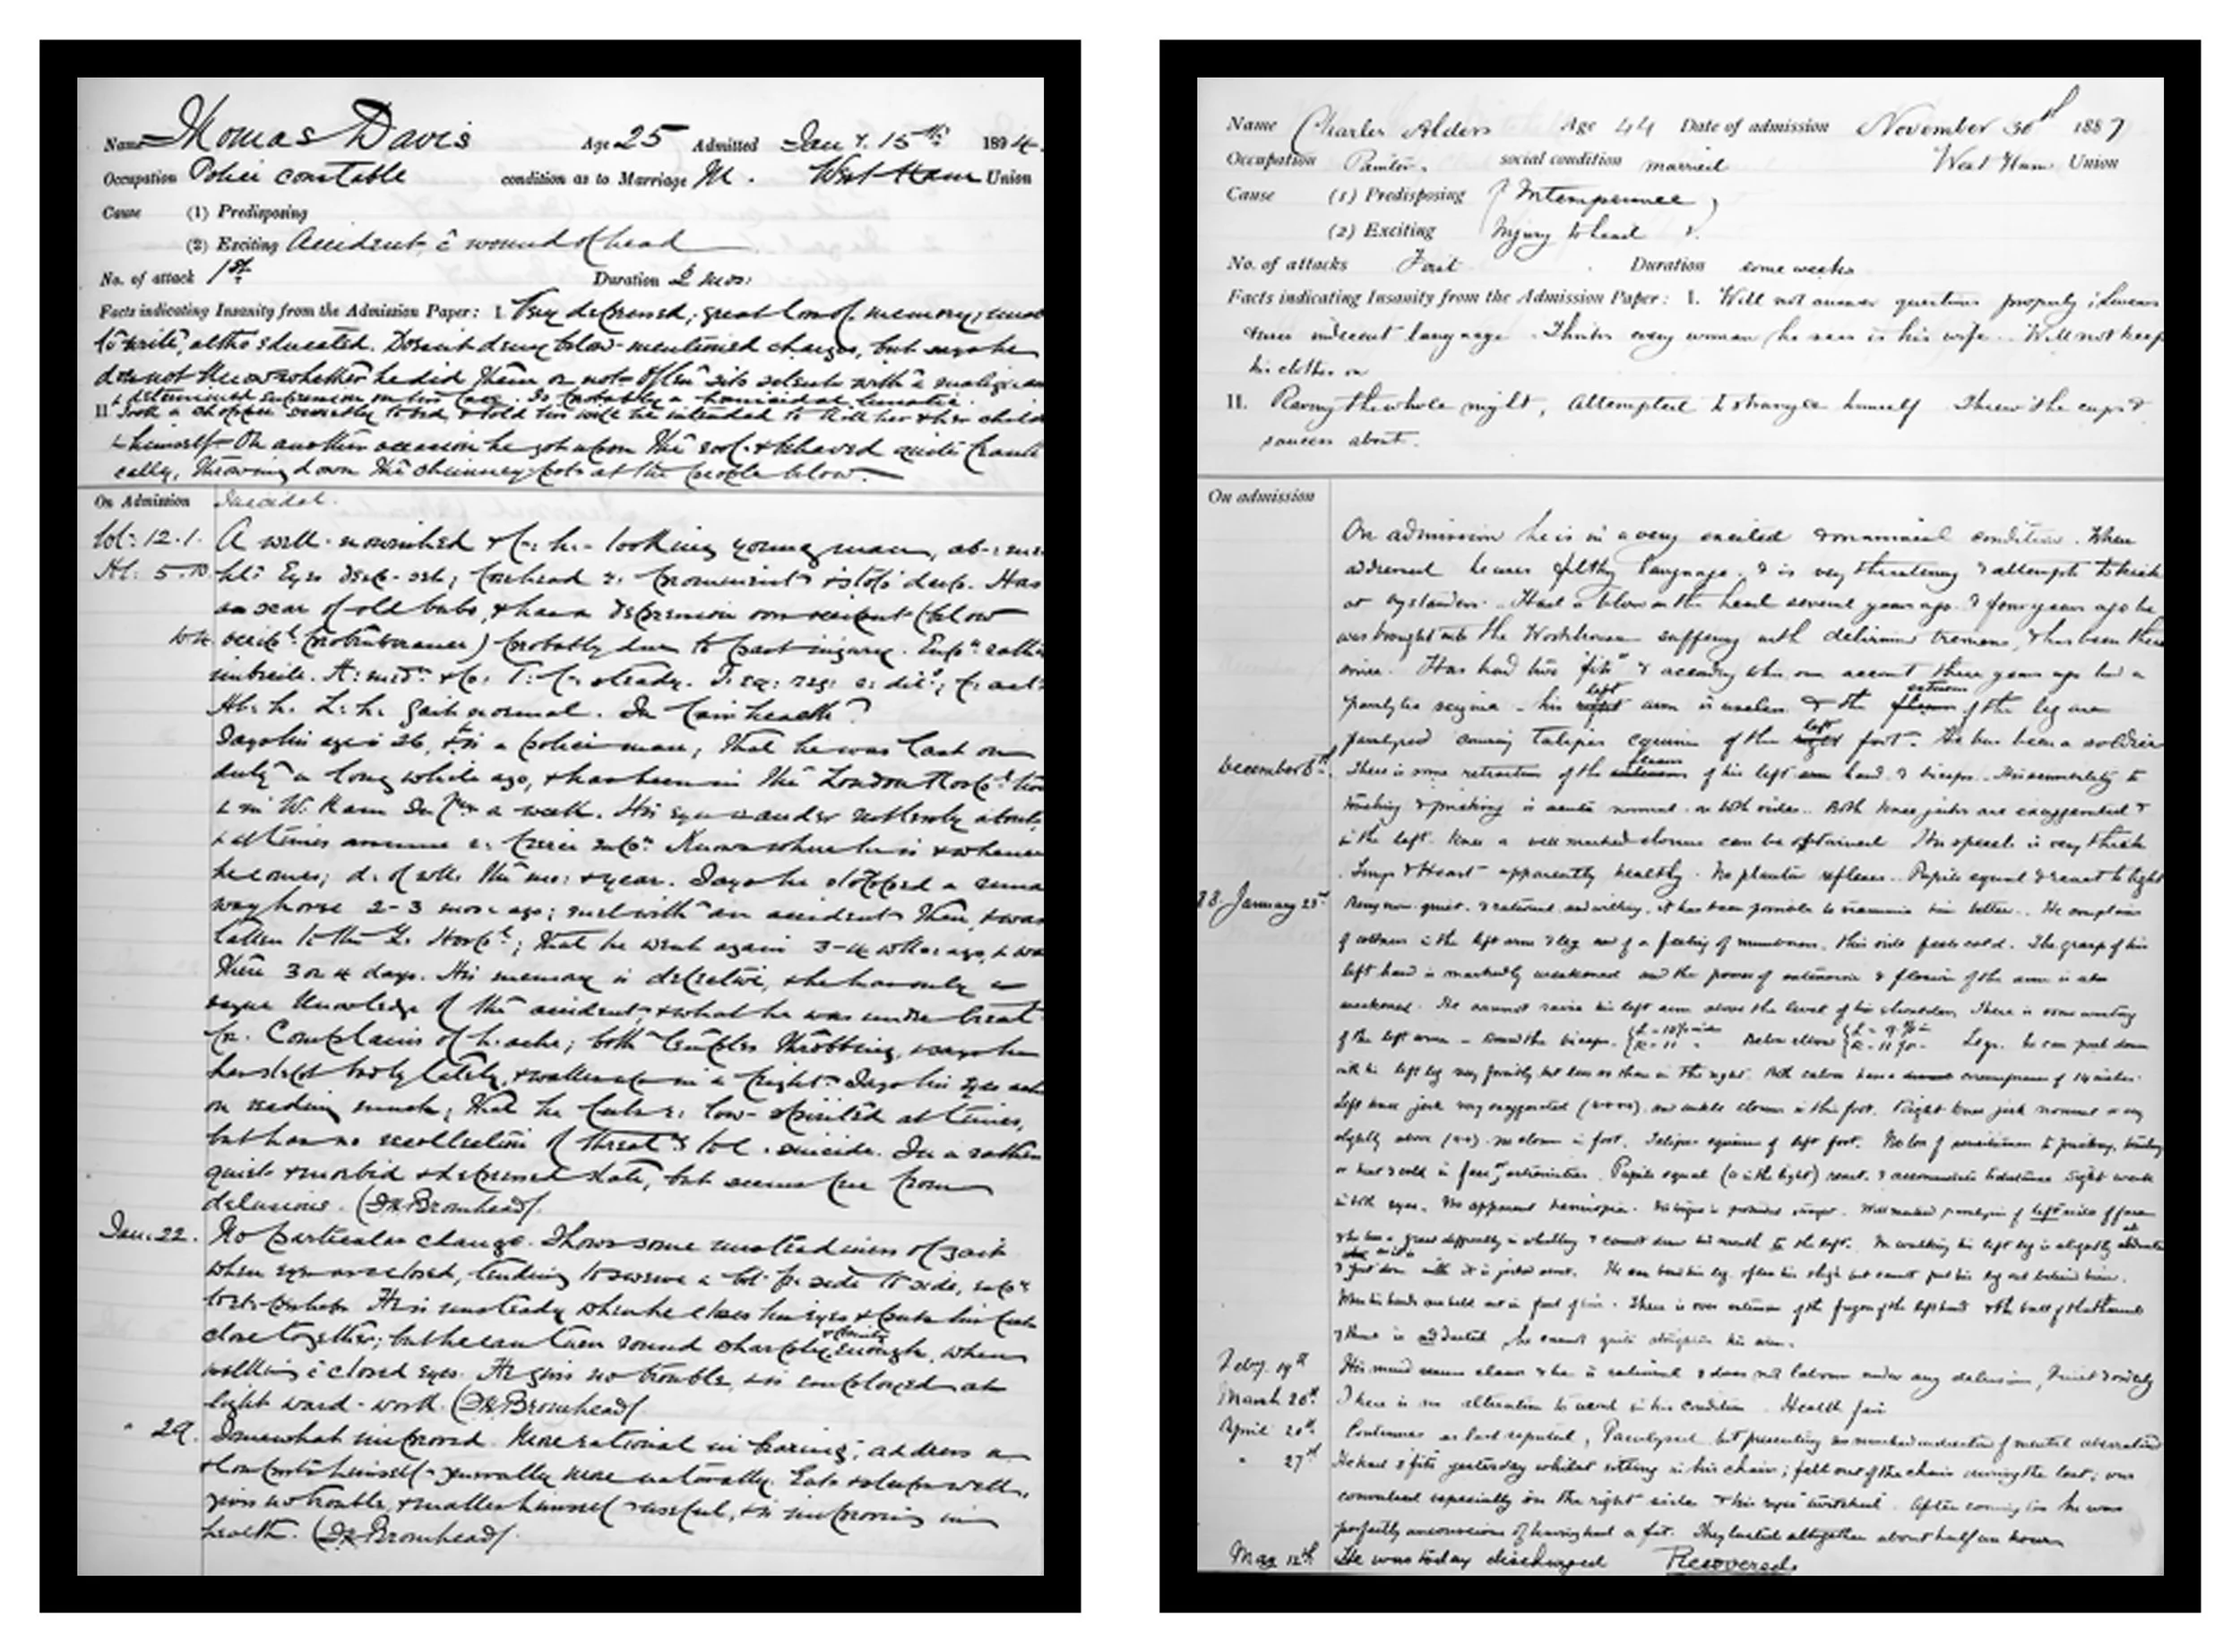 Name Thomas Davis Age 25 Admitted Jany. 15th 1894.
Occupation Police constable condition as to Marriage M. West Ham Union
Cause (1) Predisposing
(2) Exciting Accident, c wound of head
No. of attack 1st Duration 2 mos:
Facts indicating Insanity from the Admission Paper: I. Very depressed; great loss of memory;
to write, altho educated. Doesn't deny below-mentioned charges, but says he
does not know whether he did them or not. Often sits silent with a
& determined expression on his face. Is probably a homicidal lunatic.
II. Took a chopper secretly to bed, & told his wife he intended to kill her & her child
& himself. On another occasion he got upon the roof & behaved quite franti
cally, throwing down the chimney-pots at the people below.
On Admission Suicidal.
12.1. A well-nourished & looking young man,
Ht: 5. Eyes deep-set; forehead prominent Has
scar of old bubo, & has a depression (below
protuberance) probably due to past injury.
imbecile. steady.
gait normal. In fair health?
Says his age is 26, & is a policeman; that he was last on
duty a long while ago, & has been in the London Hospl.
& in W. Ham a week. His eyes wander restlessly about,
& at times assume Knows where he is & whence
he comes; the mo: & year. Says he stopped a runa
way horse 2-3 mos: ago; met with an accident then, & was
taken to the L. Hospl; that he went again 3-4 wks ago, & was
there 3 or 4 days. His memory is defective, & he has only a
vague knowledge of the accident, & what he was under treat
Complains of h.ache; both temples throbbing, says he
has slept badly lately, & wakes up in a fright. Says his eyes ache
on reading much; that he feels low-spirited at times,
but has no recollection of suicide. Is a rather
quiet & morbid & depressed state, but seems free from
delusions. (Dr Bromhead).
Jan. 22. No particular change. Shows some unsteadiness of gait
when eyes are closed, tending to swerve a bit fr. side to side,
He is unsteady when he closes his eyes & puts his feet
close together; but he can turn round sharply & firmly enough, when
walking c closed eyes. He gives no trouble, & is employed at
light ward-work. (Dr Bromhead).
" 29. Somewhat improved. More rational in bearing, address
& comports himself generally more naturally. Eats & sleeps well,
gives no trouble, & makes himself useful, & is improving in
health. (Dr Bromhead).
Name Charles Alders Age 44 Date of admission November 30th 1887
Occupation Painter. social condition married West Ham Union
Cause (1) Predisposing Intemperance
(2) Exciting Injury to head
No. of attacks First Duration some weeks
Facts indicating Insanity from the Admission Paper: I. Will not answer questions properly; Swears
& uses indecent language. Thinks every woman he sees is his wife. Will not keep
his clothes on
II. Raving the whole night, Attempted to strangle himself Threw the cups &
saucers about.
On admission
On admission he is in a very excited & maniacal condition. When
addressed he uses filthy language, & is very threatening & attempts to kick
at bystanders. Had a blow on the head several years ago. & four years ago he
was brought into the Workhouse suffering with delirium tremens, & has been there
since. Has had two "fits" & according to his own account three years ago had a
paralytic seizure - his left arm is useless & the extensors of the leg are
paralysed causing Talipes equinus of the left foot. He has been a soldier
December 8th. There is some retraction of the flexors of his left hand & biceps. His sensibility to
touching & pricking is normal on both sides. Both knee jerks are exaggerated &
in the left knee a well marked clonus can be obtained His speech is very thick
Lungs & Heart apparently healthy. No plantar reflexes. Pupils equal & react to light
88 January 23rd Being now quiet & rational and willing, it has been possible to examine him better. He complains
of coldness in the left arm & leg and of a feeling of numbness, this side feels cold. The grasp of his
left hand is markedly weakened and the power of extension & flexion of the arm is also
weakened. He cannot raise his left arm above the level of his shoulder. There is some wasting
of the left arm - Round the biceps. Below elbow Legs. he can push down
with his left leg very forcibly but less so than in the right. Both calves have a circumference of 14 inches.
Left knee jerk very exaggerated and ankle clonus in this foot. Right knee jerk normal or very
slightly above no clonus in foot. Talipes equinus of left foot. No loss of sensation to pricking, touching
or heat & cold in face or extremities. Pupils equal (in the light) react & accommodate to distance Sight weak
in both eyes. No apparent hemiopia. His tongue is protruded straight. Well marked paralysis of left side of face
& he has great difficulty in whistling & cannot draw his mouth to the left. In walking his left leg is slightly abducted
& put down with it is jerked He can bend his leg his thigh but cannot put his leg out behind him.
When his hands are held out in front of him. There is over extension of the fingers of the left hand & the ball of the thumb
& thumb is adducted he cannot quite straighten his arm.
Feby. 19th His mind seems clear & he is rational & does not labour under any delusion, Quiet & orderly
March 20th There is no alteration to record in his condition. Health fair
April 20th Continues as last reported, Paralysed but presenting no marked indication of mental aberration
" 27th He had 3 fits yesterday whilst sitting in his chair; fell out of the chair during the last; was
convulsed especially on the right side & his eyes twitched. After coming to he was
perfectly unconscious of having had a fit. They lasted altogether about half an hour
May 12th He was today discharged Recovered.